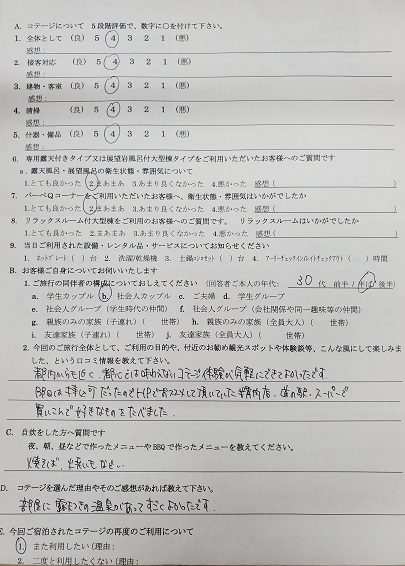 A. コテージについて 5段階評価で、数字に○を付けて下さい。
1. 全体として (良) 5 4 3 2 1 (悪)
感想:
2. 接客対応 (良) 5 4 3 2 1 (悪)
感想:
3. 建物・客室 (良) 5 4 3 2 1 (悪)
感想:
4. 清掃 (良) 5 4 3 2 1 (悪)
感想:
5. 什器・備品 (良) 5 4 3 2 1 (悪)
感想:
6. 専用露天付きタイプ又は展望岩風呂付大型棟タイプをご利用いただいたお客様へのご質問です
a. 露天風呂・展望風呂の衛生状態・雰囲気について
1.とても良かった 2.まあまあ 3.あまり良くなかった 4.悪かった 感想( )
7. バーベQコーナーをご利用いただいたお客様へ、衛生状態・雰囲気はいかがでしたか
1.とても良かった 2.まあまあ 3.あまり良くなかった 4.悪かった 感想( )
8. リラックスルーム付大型棟をご利用のお客様へのご質問です。 リラックスルームはいかがでしたか
1.とても良かった 2.まあまあ 3.あまり良くなかった 4.悪かった 感想( )
9. 当日ご利用された設備・レンタル品・サービスについてお知らせください
1. ホットプレート( )台 2. 洗濯/乾燥機 3. 土鍋コンロセット( )台 4. アーリーチェックイン/レイトチェックアウト( )時間
B. お客様ご自身についてお伺いいたします
1. ご旅行の同伴者の構成についておしえてください (回答者ご本人の年代: 30 代 前半/半ば/後半)
a. 学生カップル b. 社会人カップル c. ご夫婦 d. 学生グループ
e. 社会人グループ(学生時代の仲間) f. 社会人グループ(会社関係や同一趣味等の仲間)
g. 親族のみの家族(子連れ)( 世帯) h. 親族のみの家族(全員大人)( 世帯)
i. 友達家族(子連れ)( 世帯) j. 友達家族(全員大人)( 世帯)
2. 今回のご旅行全体として、ご利用の目的や、付近のお勧め観光スポットや体験談等、こんな風にして楽しみま
した、という口コミ情報を教えて下さい。
都内からも近く、都心では味わえないコテージ体験が気軽にできてよかったです
BBQは持込可だったのでHPでおススメして頂いていた精肉店、道の駅、スーパーで
買いこんで好きなものをたべました。
C. 自炊をした方へ質問です
夜、朝、昼などで作ったメニューやBBQで作ったメニューを教えてください。
焼そば、
D. コテージを選んだ理由やそのご感想があれば教えて下さい。
部屋に露天つきの温泉があってすごくよかったです。
E. 今回ご宿泊されたコテージの再度のご利用について
1. また利用したい(理由:
2. 二度と利用したくない(理由: